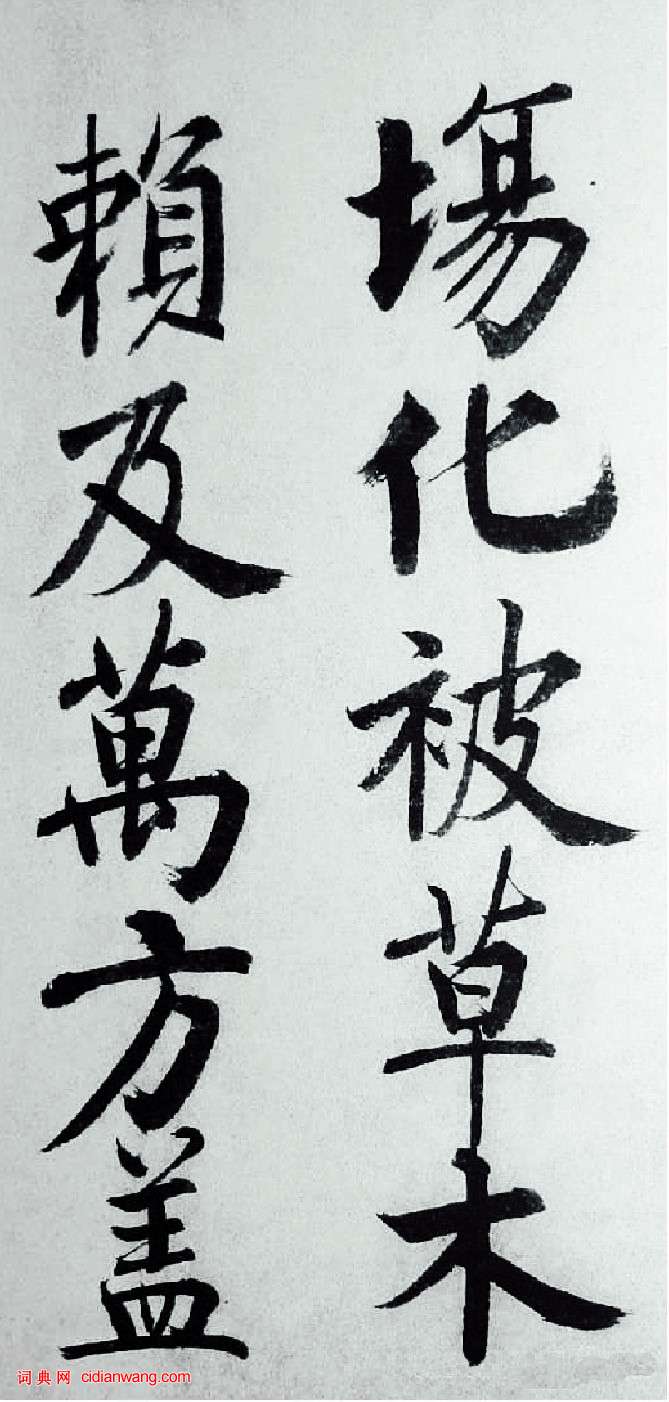 塲化被草木
頼及萬方盖
词典网 cidianwang.com